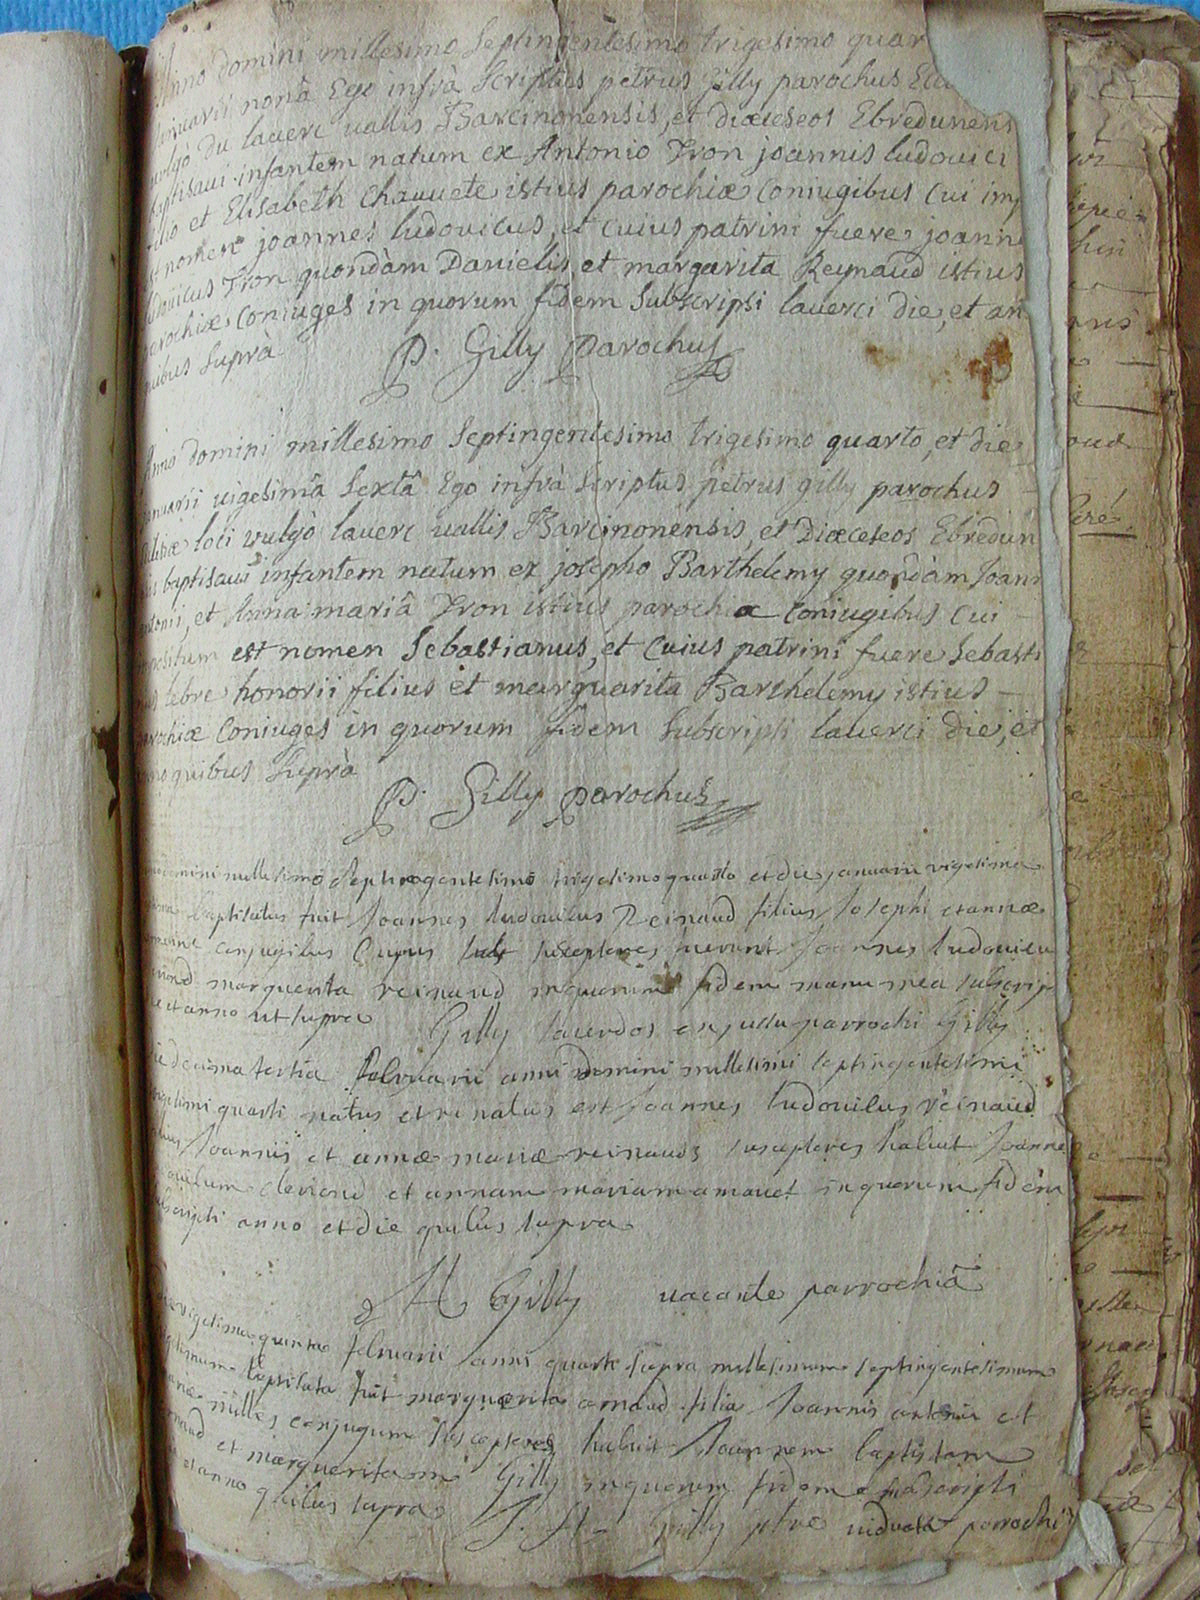 Anno domini millesimo Septingentesimo trigesimo quar
Januarii nonâ Ego infrà Scriptus petrus Gilly parochus Eccl
vulgò du laverc vallis Barcinonensis, et diœceseos Ebredunens
baptisavi infantem natum ex Antonio Tron joannis ludovici
filio et Elisabeth Chauvete istius parochiæ Coniugibus cui imp
est nomen joannes ludovicus, et cuius patrini fuere joann
ludovicus Tron quondàm Danielis, et margarita Reynaud istius
parochiæ Coniuges in quorum fidem Subscripsi laverci die, et an
quibus Suprà
P. Gilly Parochus
Anno domini millesimo Septingentesimo trigesimo quarto, et die
Januarii vigesimâ Sextâ Ego infrà Scriptus petrus gilly parochus
Ecclesiæ loci vulgò laverc vallis Barcinonensis, et Diœceseos Ebredun
sis baptisavi infantem natum ex josepho Barthelemy quondàm Joann
antonii, et Anna mariâ Tron istius parochiæ Coniugibus Cui
impositum est nomen Sebastianus, et Cuius patrini fuere Sebasti
us lebre honorii filius et marguarita Barthelemy istius
parochiæ Coniuges in quorum fidem Subscripsi laverci die, et
anno quibus Suprà
P. Gilly parochus
domini millesimo Septingentesimo trigesimo quarto et die januarii vigesima
baptisatus fuit Joannes ludovicus Reinaud filius Josephi et annæ
conjugibus Cujus susceptores fuerunt Joannes ludovicu
marguerita reinaud in quorum fidem manu mea subscrip
die et anno ut supra Gilly Sacerdos ex jussu parrochi Gilly
die decima tertia februarii anni domini millesimi septingentesimi
trigesimi quarti natus et renatus est Joannes ludovicus reinaud
filius Joannis et annæ mariæ reinauds susceptores habuit Joanne
ludovicum et annam mariam amavet in quorum fidem
subscripsi anno et die quibus supra
Gilly vacante parrochiâ
die vigesima quinta februarii anni quarti supra millesimum septingentesimum
trigesimum baptisata fuit marguerita arnaud filia Joannis antonii et
mariæ conjugum susceptores habuit Joannem baptistam
arnaud et margueritam Gilly in quorum fidem subscripsi
et anno quibus supra Gilly ptre viduata parrochi